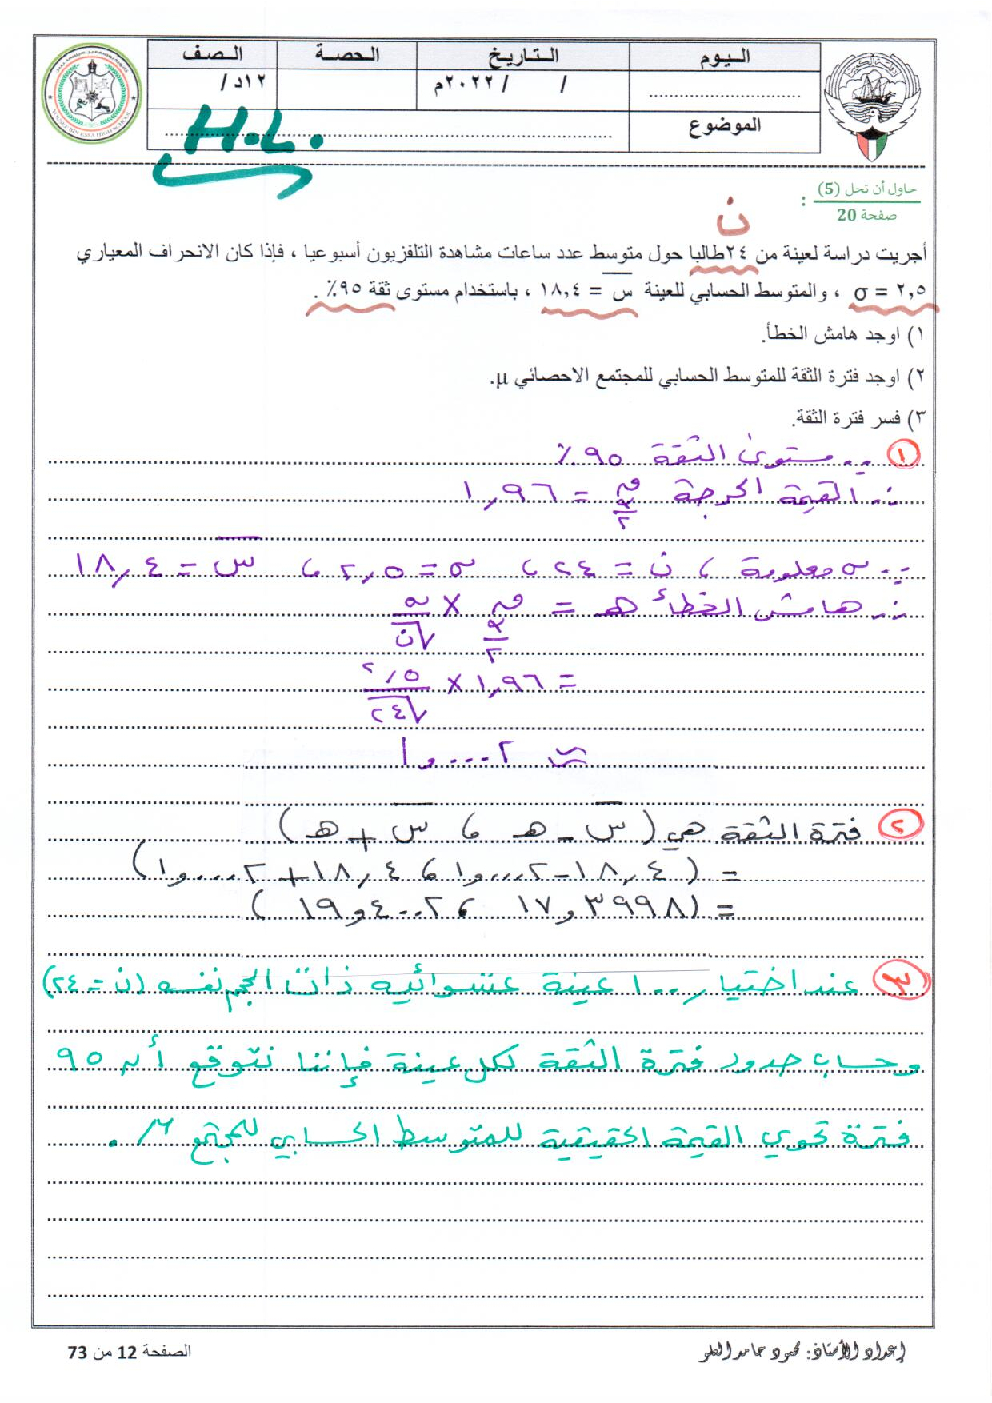 اليوم التاريخ الحصة الصف
/ / ٢٠٢٢م ١٢د /
الموضوع
H.L.
حاول أن تحل (5)
صفحة 20 :
ن
أجريت دراسة لعينة من ٢٤ طالبا حول متوسط عدد ساعات مشاهدة التلفزيون أسبوعيا ، فإذا كان الانحراف المعياري
σ = ٢,٥ ، والمتوسط الحسابي للعينة س̅ = ١٨,٤ ، باستخدام مستوى ثقة ٩٥٪ .
١) اوجد هامش الخطأ.
٢) اوجد فترة الثقة للمتوسط الحسابي للمجتمع الاحصائي µ.
٣) فسر فترة الثقة.
١ ∵ مستوى الثقة ٩٥٪
∴ القيمة الحرجة ق α/٢ = ١,٩٦
∵ σ معلومة ، ن = ٢٤ ، σ = ٢,٥ ، س̅ = ١٨,٤
∴ هامش الخطأ هـ = ق α/٢ × σ/√ن
= ١,٩٦ × ٢,٥/√٢٤
≈ ١,٠٠٠٢
٢ فترة الثقة هي (س̅ - هـ ، س̅ + هـ)
= (١٨,٤ - ١,٠٠٠٢ ، ١٨,٤ + ١,٠٠٠٢)
= (١٧,٣٩٩٨ ، ١٩,٤٠٠٢)
٣ عند اختيار ١٠٠ عينة عشوائية ذات الحجم نفسه (ن = ٢٤)
وحساب حدود فترة الثقة لكل عينة فإننا نتوقع أن ٩٥
فترة تحوي القيمة الحقيقية للمتوسط الحسابي للمجتمع µ .
إعداد الأستاذ: محمود حامد العلو
الصفحة 12 من 73